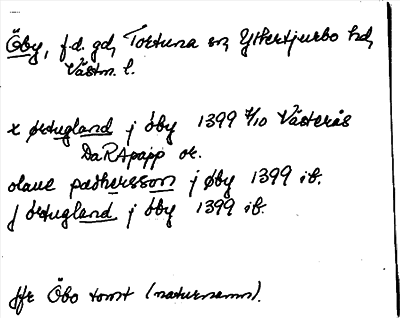 Öby, f.d. gd, Tortuna sn, Yttertjurbo hd,
Västm. l.
x örtugland j öby 1399 7/10 Västerås
DaRApapp or.
olaue pædhersson j øby 1399 ib.
j örtugland j öby 1399 ib.
Jfr Öbo tomt (naturnamn).